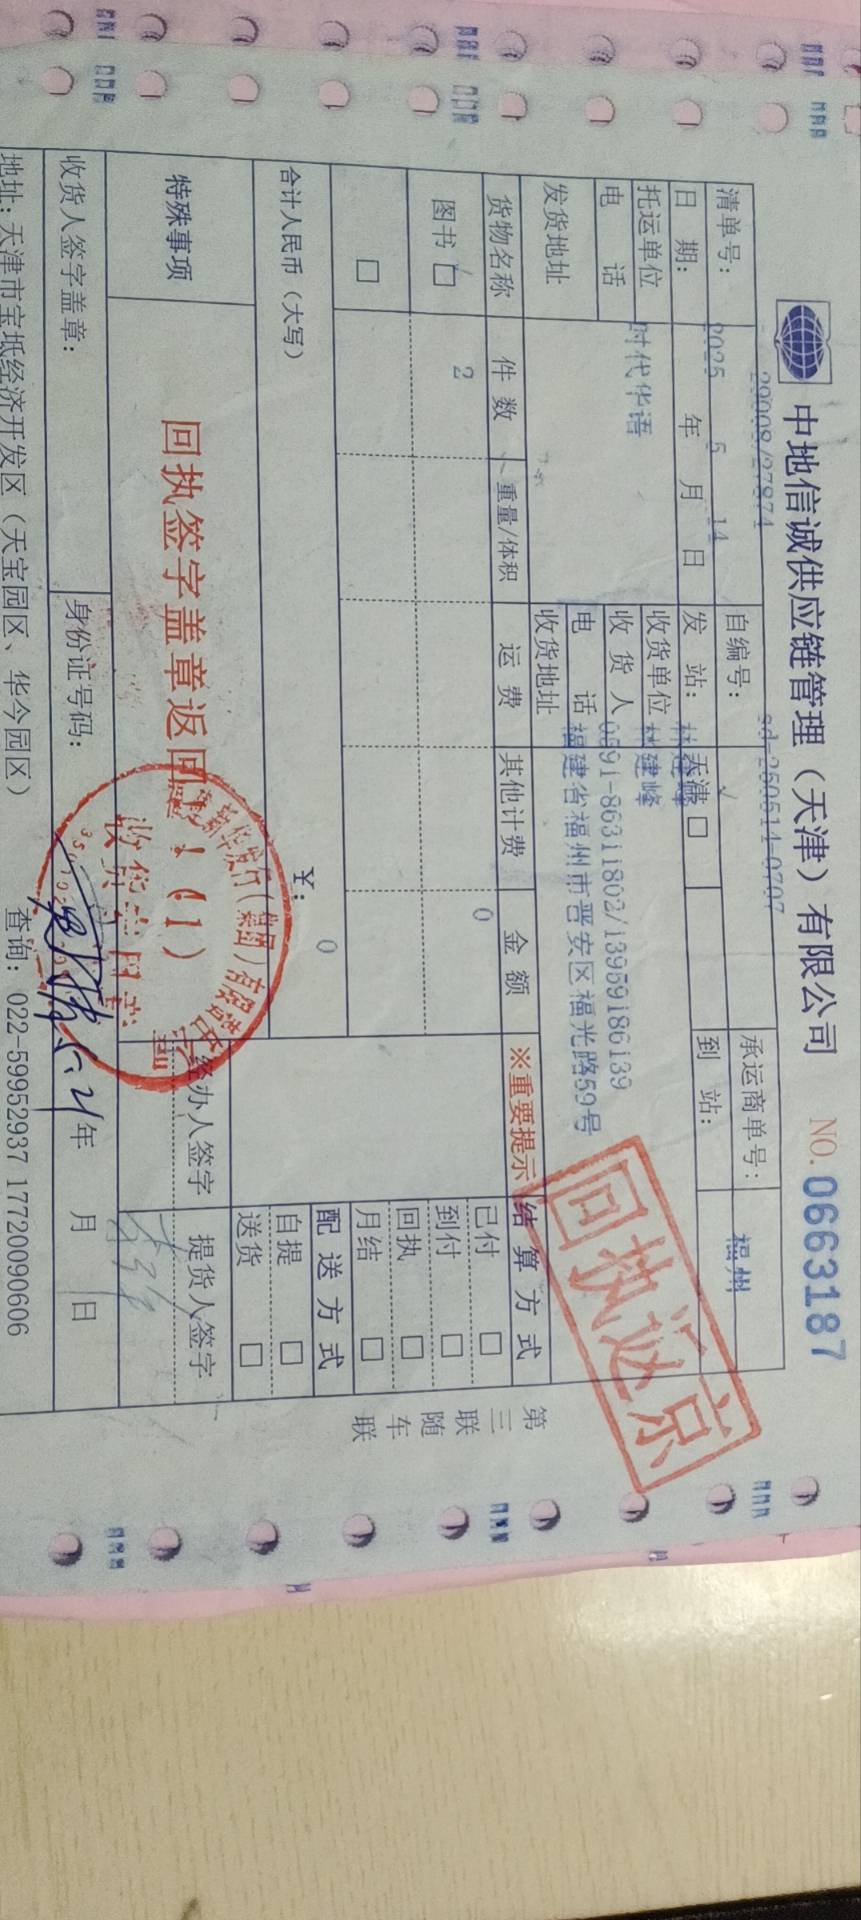 中地信诚供应链管理（天津）有限公司 NO. 0663187
清单号： 29008/27871 自编号： sd-250514-0707 承运商单号：
日期： 2025 年 5 月 14 日 发站： 天津 □ 到站： 福州
托运单位 时代华语 收货单位 林建峰
收货人 林建峰
电话 电话 0591-86311802/13959186139
发货地址 收货地址 福建省福州市晋安区福光路59号
货物名称 件数 重量/体积 运费 其他计费 金额 ※重要提示 结算方式
图书 □ 2 0 已付 □
到付 □
□ 回执 □
月结 □
合计人民币（大写） ￥： 0 配送方式
自提 □
送货 □
特殊事项 回执签字盖章返回！（1） 经办人签字 提货人签字
收货人签字盖章： 身份证号码： 5.21 年 月 日
地址：天津市宝坻经济开发区（天宝园区、华今园区） 查询：022-59952937 17720090606
第三联 随车联
回执返京
新华发行（集团）有限
收货专用章